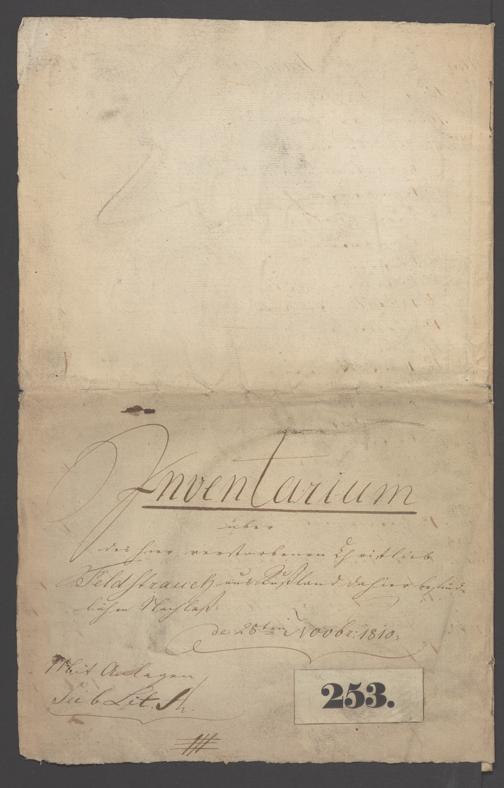 Inventarium
über
des hier verstorbenen Christlieb
Feldstrauch aus Rußland dahier befind-
lichen Nachlaß.
de 28ten Novbr: 1810.
Mit Anlagen
Sub Lit.
253.